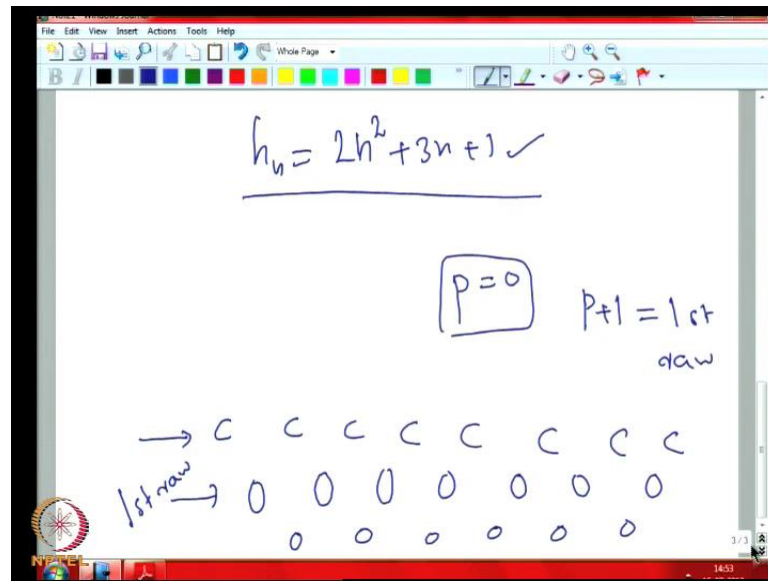 File Edit View Insert Actions Tools Help
Whole Page
B I
hₙ = 2n² + 3n + 1 ✓
p = 0
p+1 = 1 st
raw
→ C C C C C C C C
1st raw → 0 0 0 0 0 0 0
0 0 0 0 0 0
3/3
NPTEL
14:53